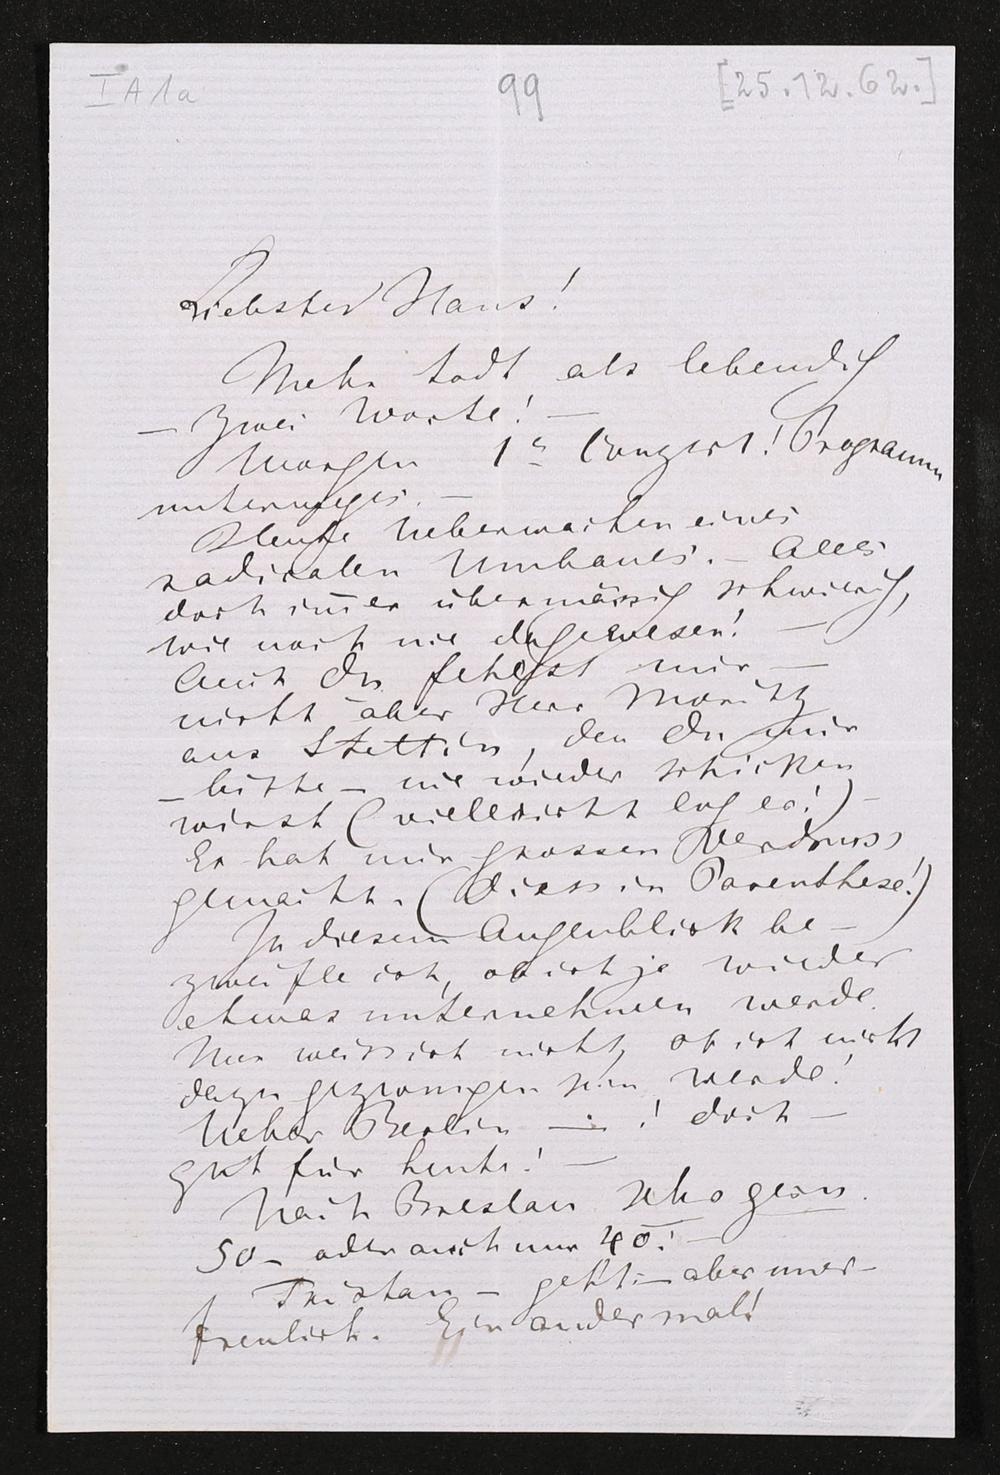 I A 1a
99
[25.12.62.]
Liebster Hans!
Mehr todt als lebendig
— zwei Worte! —
Morgen 1s Conzert! Programm
unterweges. —
Heute Ueberwachen eines
radicalen Umbaues. — Alles
doch im̄er übermässig schwierig,
wie noch nie dagewesen! —
Auch Du fehlst mir —
nicht aber Herr Moritz
aus Stettin, den Du mir
— bitte — nie wieder schicken
wirst (vielleicht log er!) —
Er hat mir grossen Verdruss
gemacht. (Diess in Parenthese!)
In diesem Augenblick be-
zweifle ich, ob ich je wieder
etwas unternehmen werde.
Nur weiss ich nicht, ob ich nicht
dazu gezwungen sein werde!
Ueber Berlin — ! doch —
gut für heute! —
Nach Breslau sehr gern.
50 – oder auch nur 40! —
Tristan — geht — aber uner-
freulich. Ein andermal!